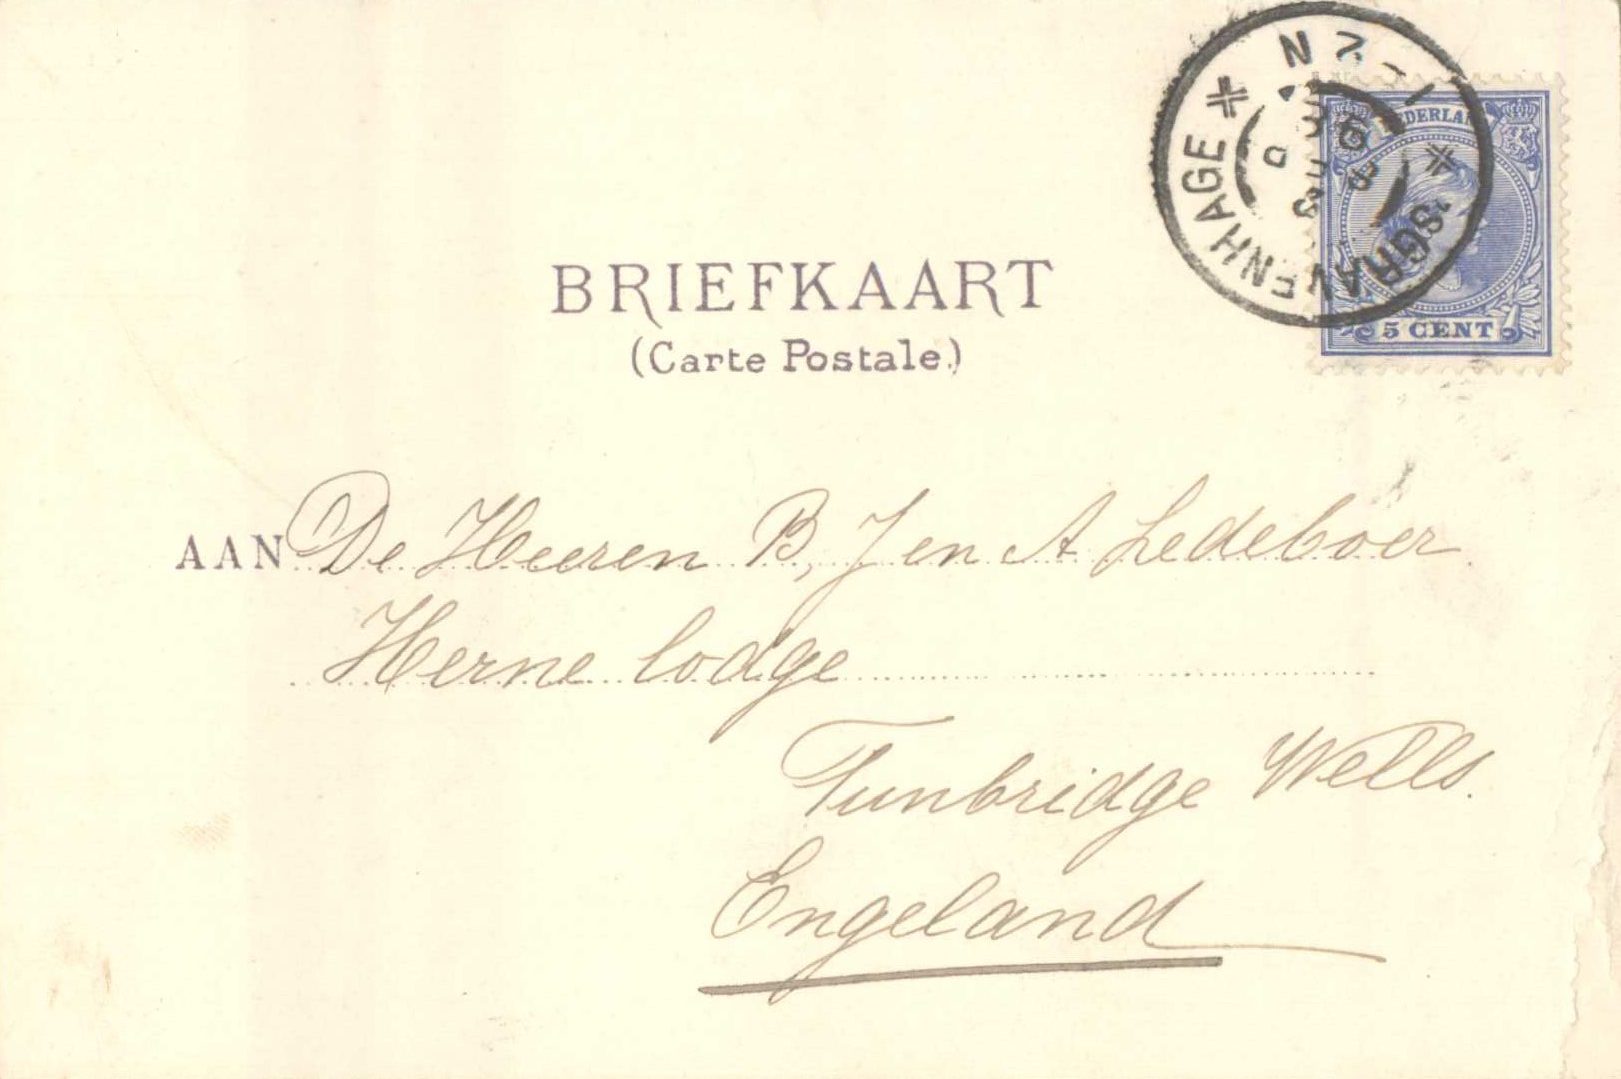 BRIEFKAART
(Carte Postale.)
'SGRAVENHAGE
NEDERLAND
5 CENT
AAN De Heeren B, J en A Ledeboer
Herne lodge
Tunbridge Wells.
Engeland